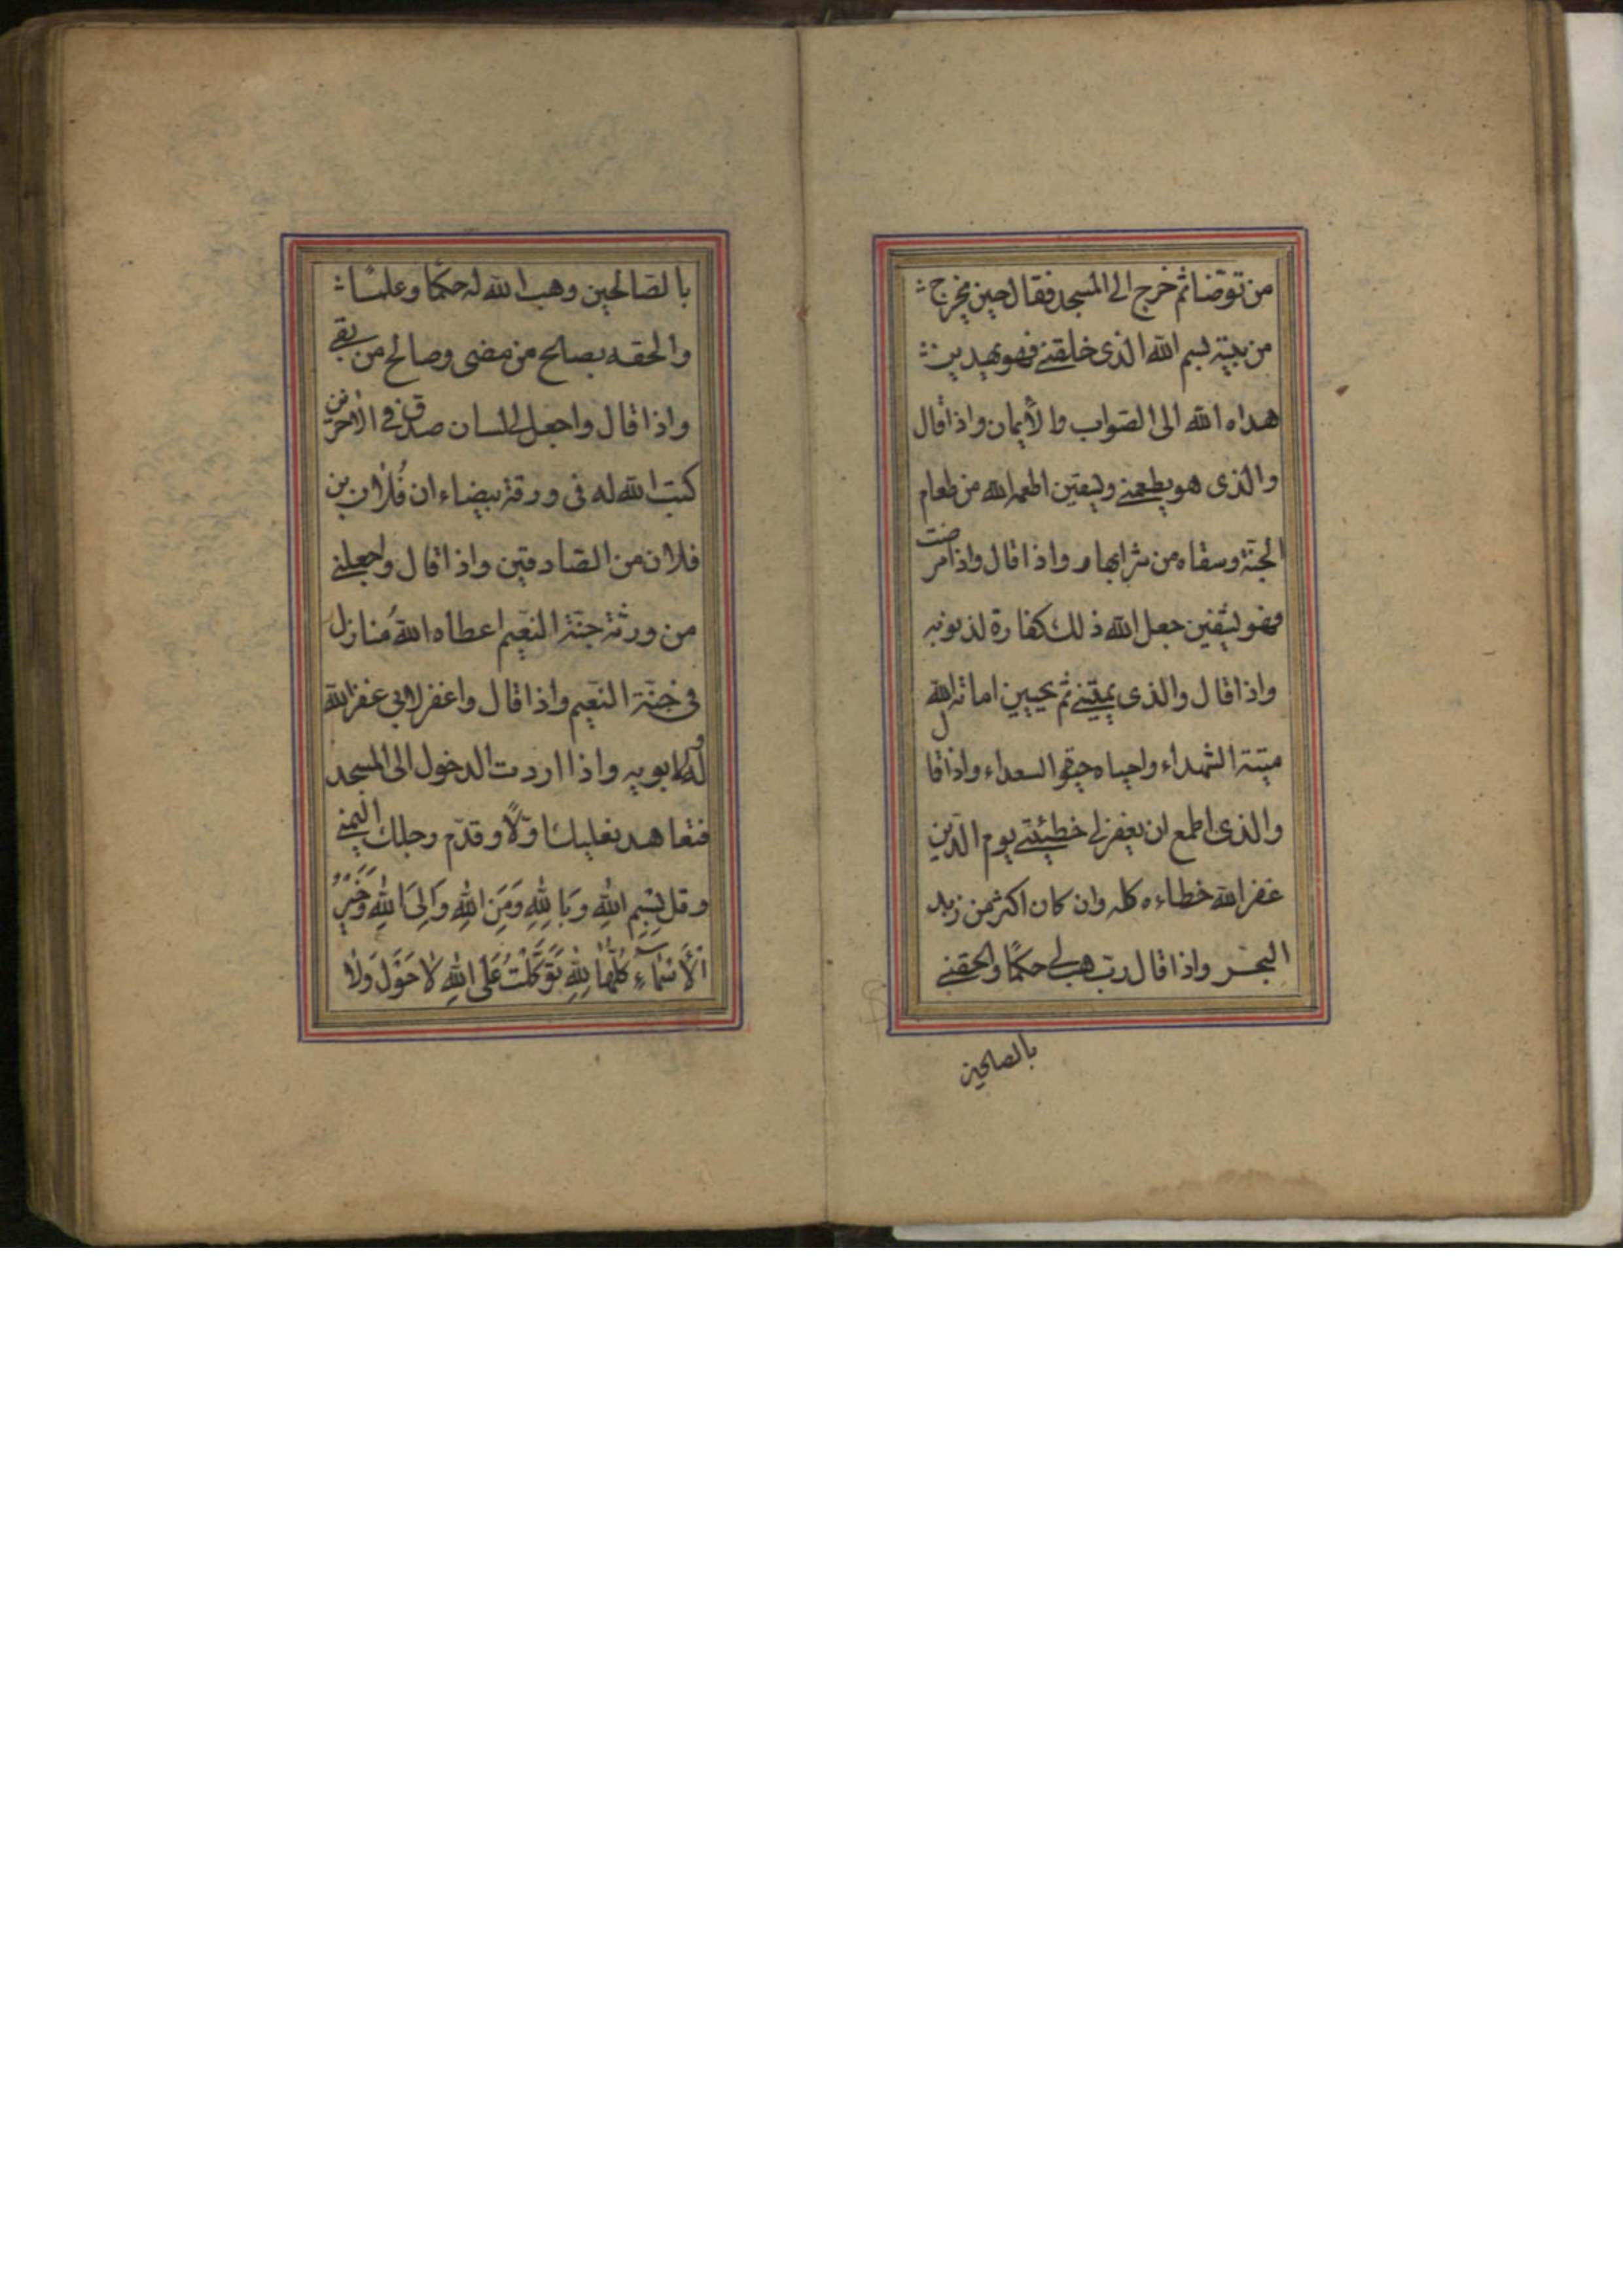 من توضأ ثم خرج الى المسجد فقال حين يخرج
من بيته بسم الله الذى خلقنى فهو يهدين
هداه الله الى الصواب والأيمان واذا قال
والذى هو يطعمنى ويسقين اطعمه الله من طعام
الجنة وسقاه من شرابها واذا قال واذا مرضت
فهو يشفين جعل الله ذلك كفارة لذنوبه
واذا قال والذى يميتنى ثم يحيين اماته الله
ميتة الشهداء واحياه حيوة السعداء واذا قال
والذى اطمع ان يغفر لى خطيئتى يوم الدّين
غفر الله خطاءه كله وان كان اكثر من زبد
البحر واذا قال ربّ هب لى حكمًا والحقنى
بالصالحين
بالصّالحين وهب الله له حكمًا وعلمًا
والحقه بصالح من مضى وصالح من بقى
واذا قال واجعل لى لسان صدق فى الآخرين
كتب الله له فى ورقة بيضاء ان فُلان بن
فلان من الصّادقين واذا قال واجعلنى
من ورثة جنّة النّعيم اعطاه الله مَنازل
فى جنّة النّعيم واذا قال واغفر لابى غفر الله
له ولابويه واذا اردت الدخول الى المسجد
فتعاهد نعليك اوّلاً وقدّم رجلك اليمنى
وقل بِسْمِ اللهِ وَبِاللهِ وَمِنَ اللهِ وَاِلَى اللهِ وَخَيْرُ
الْأَسْمَاءِ كُلُّهَا لِلّهِ تَوَكَّلْتُ عَلَى اللهِ لا حَوْلَ وَلا